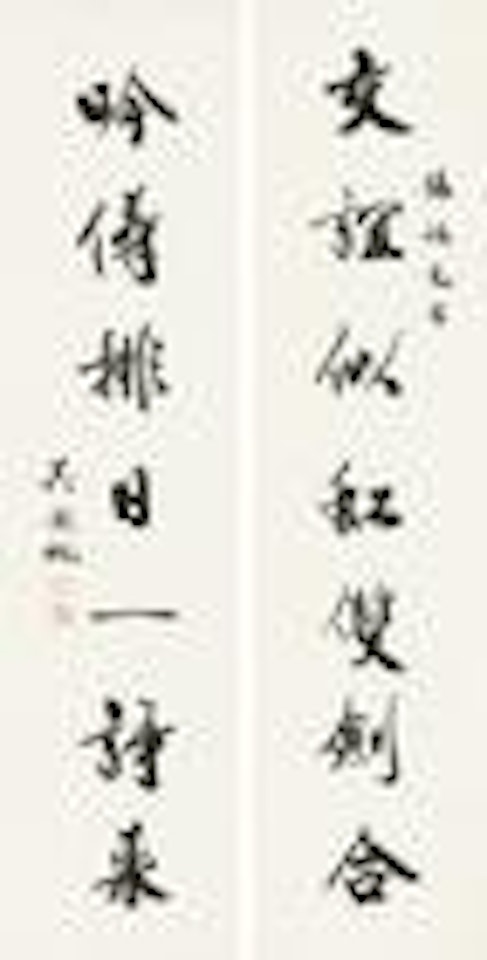 交誼似紅雙劍合
吟傳排日一詩來